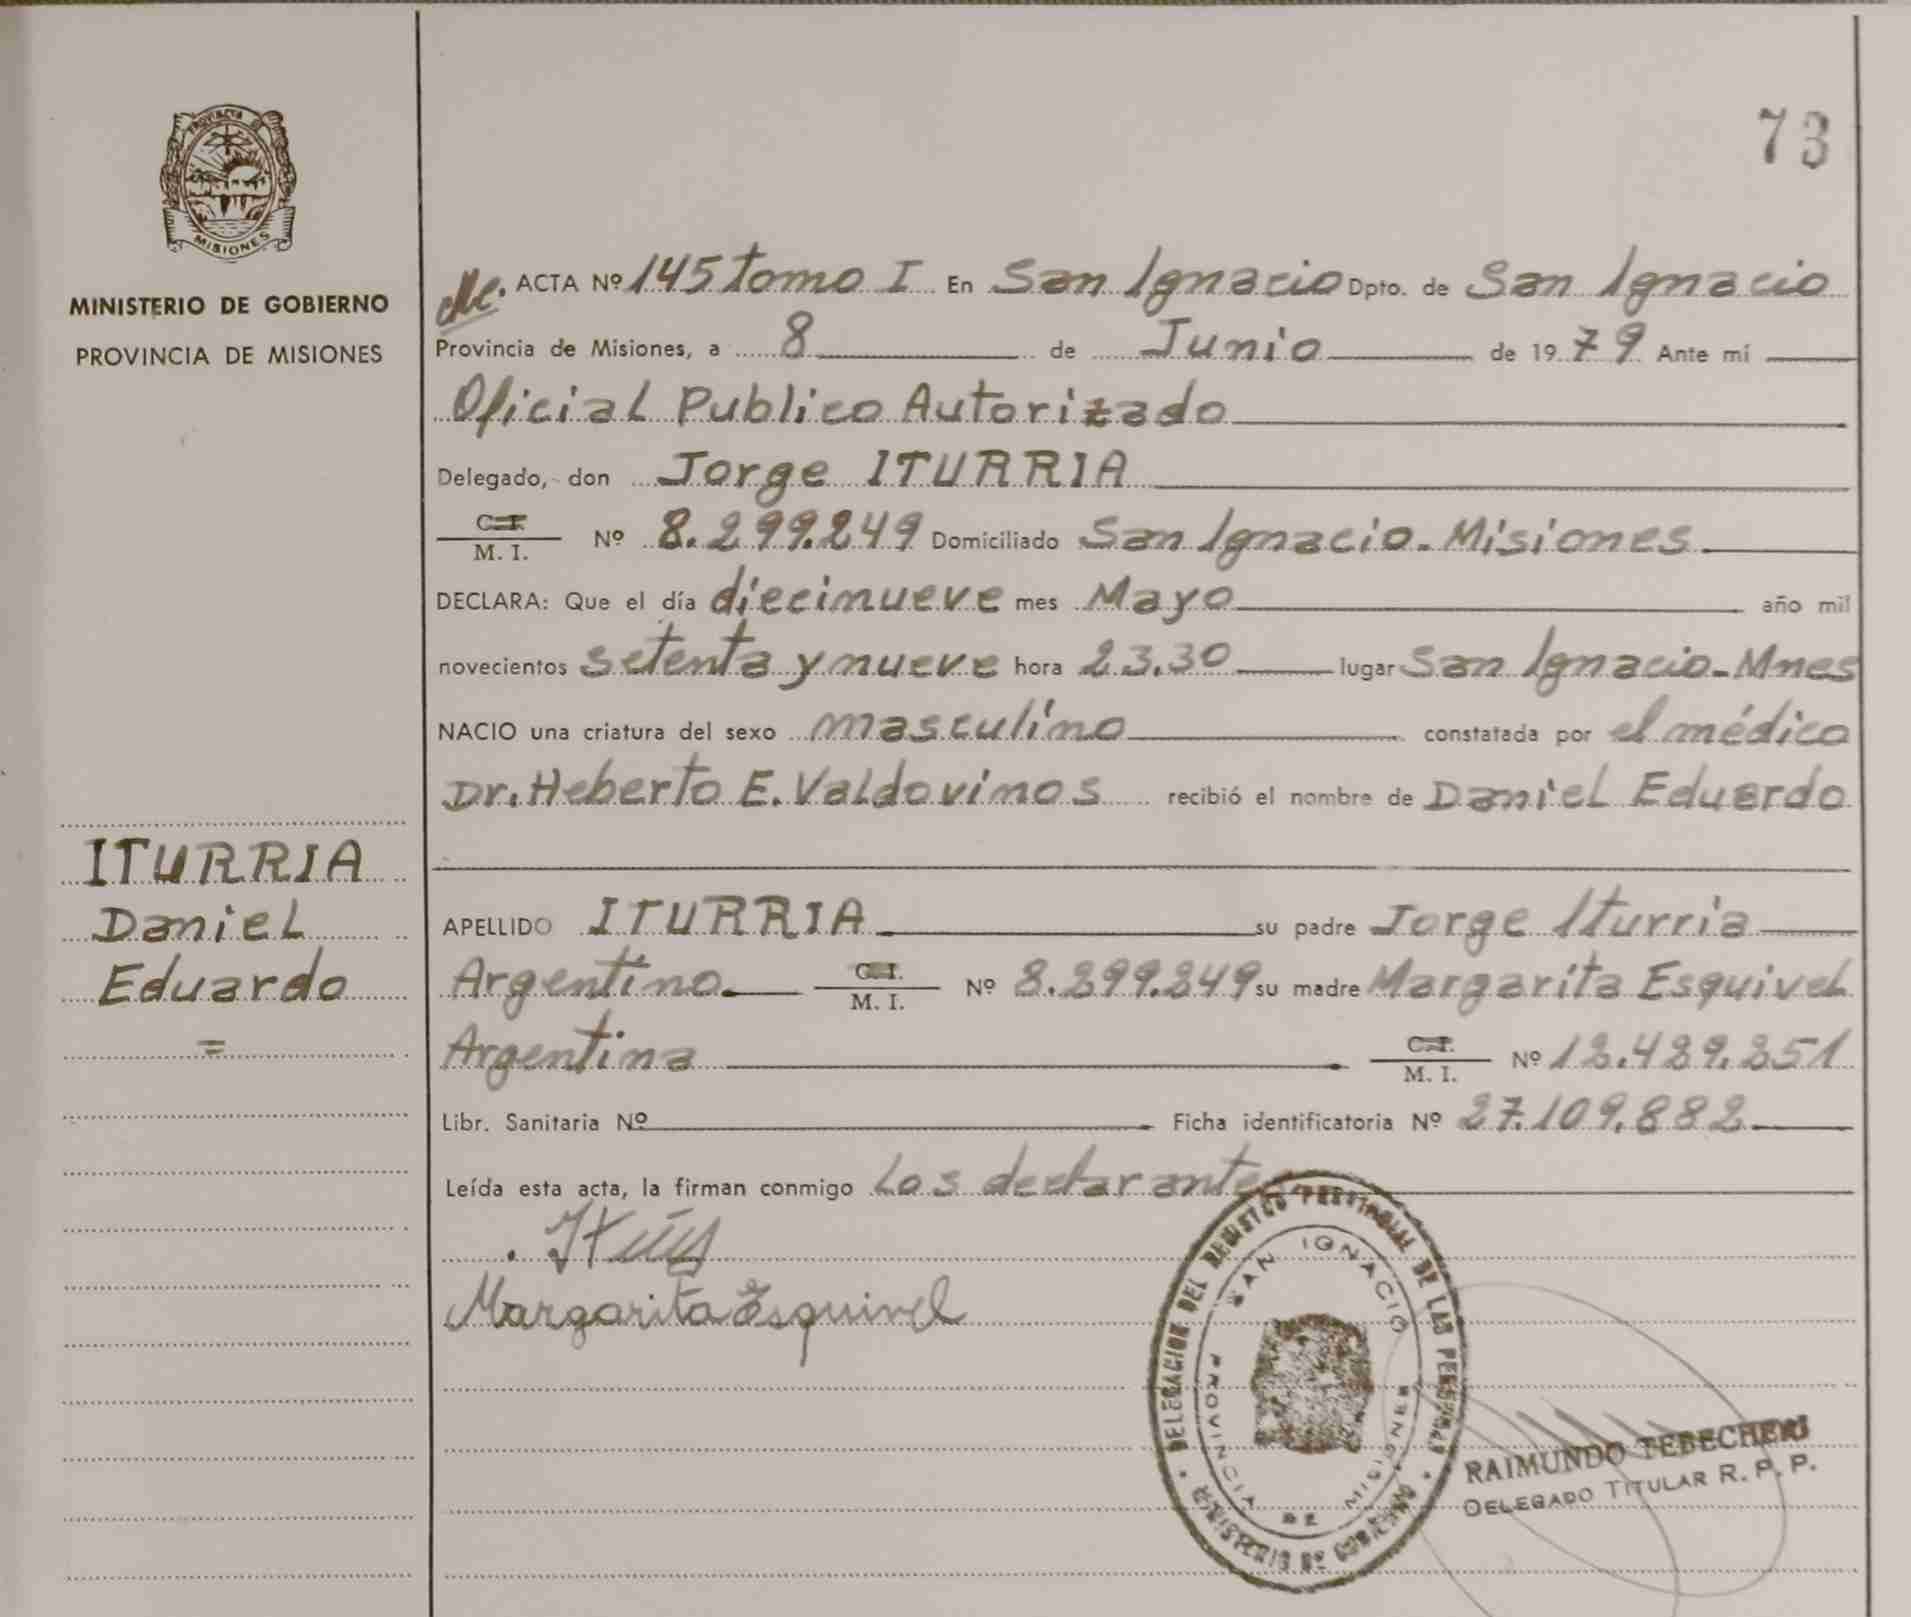 PROVINCIA DE
MISIONES
MINISTERIO DE GOBIERNO
PROVINCIA DE MISIONES
ITURRIA
Daniel
Eduardo
=
73
ACTA Nº 145 tomo I En San Ignacio Dpto. de San Ignacio
Provincia de Misiones, a 8 de Junio de 1979 Ante mí
Oficial Publico Autorizado
Delegado, don Jorge ITURRIA
C. I.
M. I. Nº 8.299.249 Domiciliado San Ignacio - Misiones
DECLARA: Que el día diecinueve mes Mayo año mil
novecientos setenta y nueve hora 23.30 lugar San Ignacio - Mnes
NACIO una criatura del sexo masculino constatada por el médico
Dr. Heberto E. Valdovinos recibió el nombre de Daniel Eduardo
APELLIDO ITURRIA su padre Jorge Iturria
Argentino C. I.
M. I. Nº 8.299.249 su madre Margarita Esquivel
Argentina C. I.
M. I. Nº 12.429.251
Libr. Sanitaria Nº Ficha identificatoria Nº 27.109.882
Leída esta acta, la firman conmigo Los declarantes
Margarita Esquivel
DELEGACION DEL REGISTRO PROVINCIAL DE LAS PERSONAS
SAN IGNACIO
PROVINCIA DE MISIONES
MINISTERIO DE GOBIERNO
RAIMUNDO TEBECHERI
DELEGADO TITULAR R. P. P.